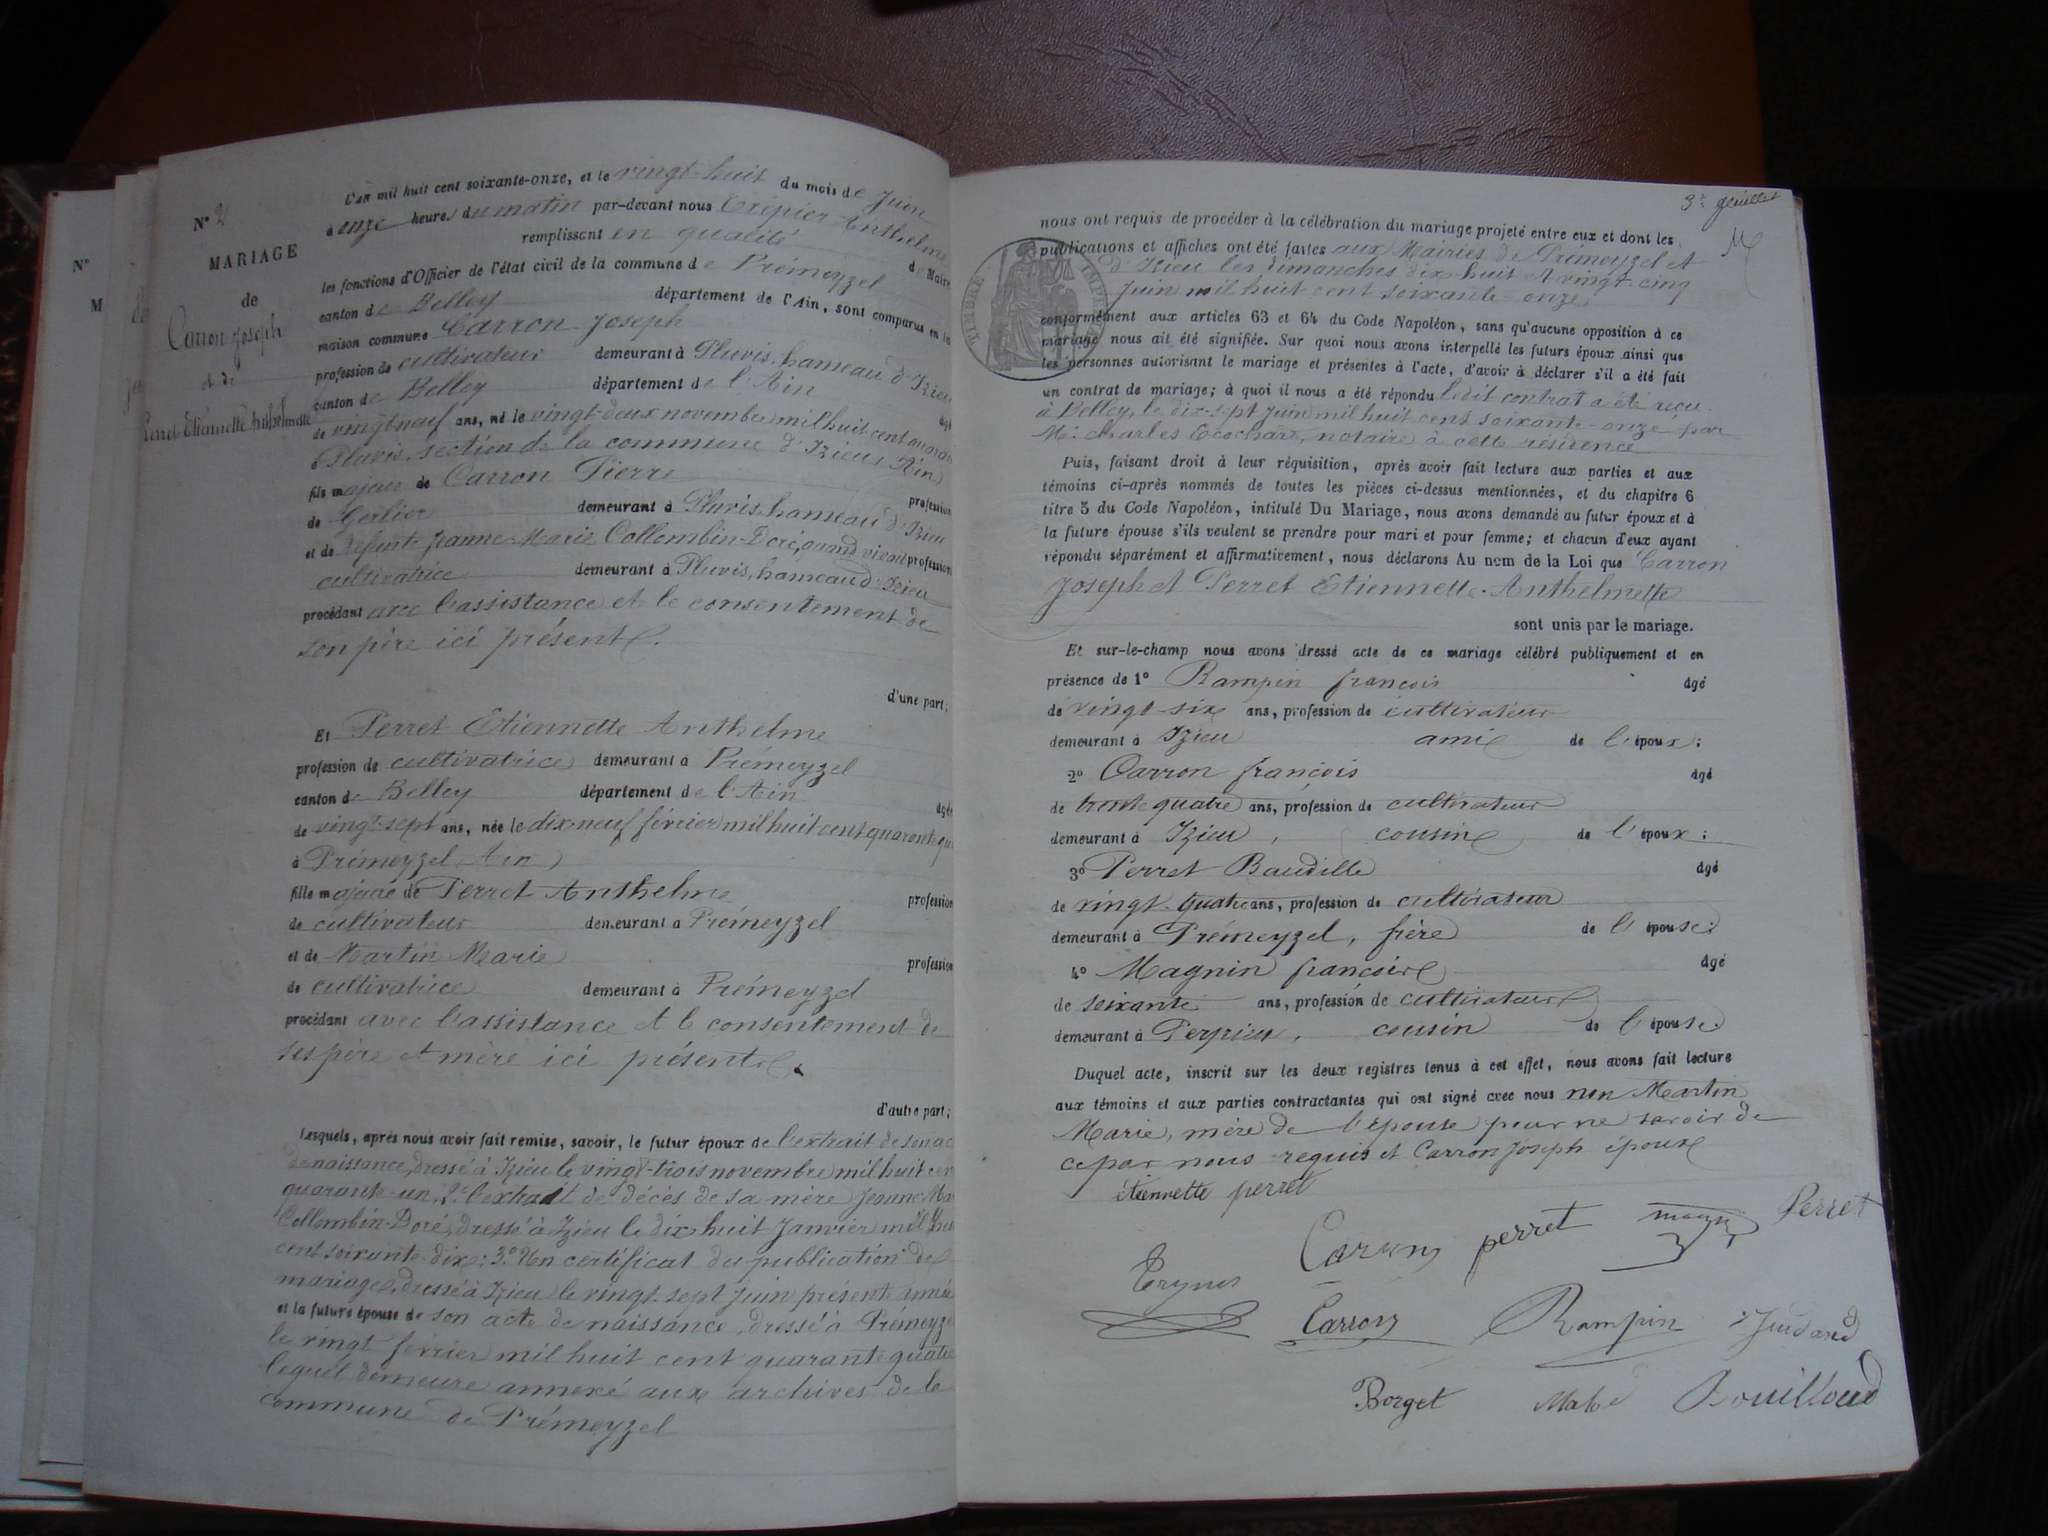 N° 2
MARIAGE
de
Carron Joseph
et de
Perret Etiennette Anthelmette
N°
M
L'an mil huit cent soixante-onze, et le vingt-huit du mois de Juin
à onze heures du matin par-devant nous Crépier Anthelme
remplissant en qualité de Maire
les fonctions d'Officier de l'état civil de la commune de Prémeyzel
canton de Belley département de l'Ain, sont comparus en la
maison commune Carron Joseph
profession de cultivateur demeurant à Pluvis, hameau d'Izieu
canton de Belley département de l'Ain âgé
de vingt neuf ans, né le vingt-deux novembre mil huit cent quaran
à Pluvis section de la commune d'Izieu (Ain)
fils majeur de Carron Pierre profession
de demeurant à Pluvis hameau d'Izieu
et de défunte Jeanne-Marie Collombin-Doré, quand vivait profession
cultivatrice demeurant à Pluvis, hameau d'Izieu
procédant avec l'assistance et le consentement de
son père ici présent.
d'une part;
Et Perret Etiennette Anthelme
profession de cultivatrice demeurant à Prémeyzel
canton de Belley département de l'Ain âgée
de vingt-sept ans, née le dix neuf février mil huit cent quarante qu
à Prémeyzel, Ain)
fille majeure de Perret Anthelme profession
de cultivateur demeurant à Prémeyzel
et de Martin Marie profession
de cultivatrice demeurant à Prémeyzel
procédant avec l'assistance et le consentement de
ses père et mère ici présents.
d'autre part;
Lesquels, après nous avoir fait remise, savoir, le futur époux de l'extrait de son ac
de naissance, dressé à Izieu le vingt-trois novembre mil huit cen
quarante-un, 2° l'extrait de décès de sa mère Jeanne Mar
Collombin-Doré, dressé à Izieu le dix huit Janvier mil hui
cent soixante-dix; 3° Un certificat de publication de
mariage, dressé à Izieu le vingt-sept juin présente année
et la future épouse de son acte de naissance, dressé à Prémeyze
le vingt février mil huit cent quarante quatre
lequel demeure annexé aux archives de la
commune de Prémeyzel
3e feuillet
nous ont requis de procéder à la célébration du mariage projeté entre eux et dont les
publications et affiches ont été faites aux Mairies de Prémeyzel et
d'Izieu les dimanches dix-huit et vingt-cinq
Juin mil huit cent soixante-onze
TIMBRE IMPÉRIAL
conformément aux articles 63 et 64 du Code Napoléon, sans qu'aucune opposition à ce
mariage nous ait été signifiée. Sur quoi nous avons interpellé les futurs époux ainsi que
les personnes autorisant le mariage et présentes à l'acte, d'avoir à déclarer s'il a été fait
un contrat de mariage; à quoi il nous a été répondu ledit contrat a été reçu
à Belley, le dix-sept juin mil huit cent soixante-onze par
Me Charles Ecochard, notaire à cette résidence
Puis, faisant droit à leur réquisition, après avoir fait lecture aux parties et aux
témoins ci-après nommés de toutes les pièces ci-dessus mentionnées, et du chapitre 6
titre 5 du Code Napoléon, intitulé Du Mariage, nous avons demandé au futur époux et à
la future épouse s'ils veulent se prendre pour mari et pour femme; et chacun d'eux ayant
répondu séparément et affirmativement, nous déclarons Au nom de la Loi que Carron
Joseph et Perret Etiennette-Anthelmette
sont unis par le mariage.
Et sur-le-champ nous avons dressé acte de ce mariage célébré publiquement et en
présence de 1° Rampin françois âgé
de vingt-six ans, profession de cultivateur
demeurant à Izieu ami de l'époux;
2° Carron françois âgé
de trente quatre ans, profession de cultivateur
demeurant à Izieu, cousin de l'époux;
3° Perret Baudille âgé
de vingt-quatre ans, profession de cultivateur
demeurant à Prémeyzel, frère de l'épouse
4° Magnin françois âgé
de soixante ans, profession de cultivateur
demeurant à Peyrieu, cousin de l'épouse
Duquel acte, inscrit sur les deux registres tenus à cet effet, nous avons fait lecture
aux témoins et aux parties contractantes qui ont signé avec nous non Martin
Marie, mère de l'épouse pour ne savoir de
ce par nous requis et Carron Joseph époux
étiennette perret
Carron perret Perret
Carron Rampin
Borget Bouilloud